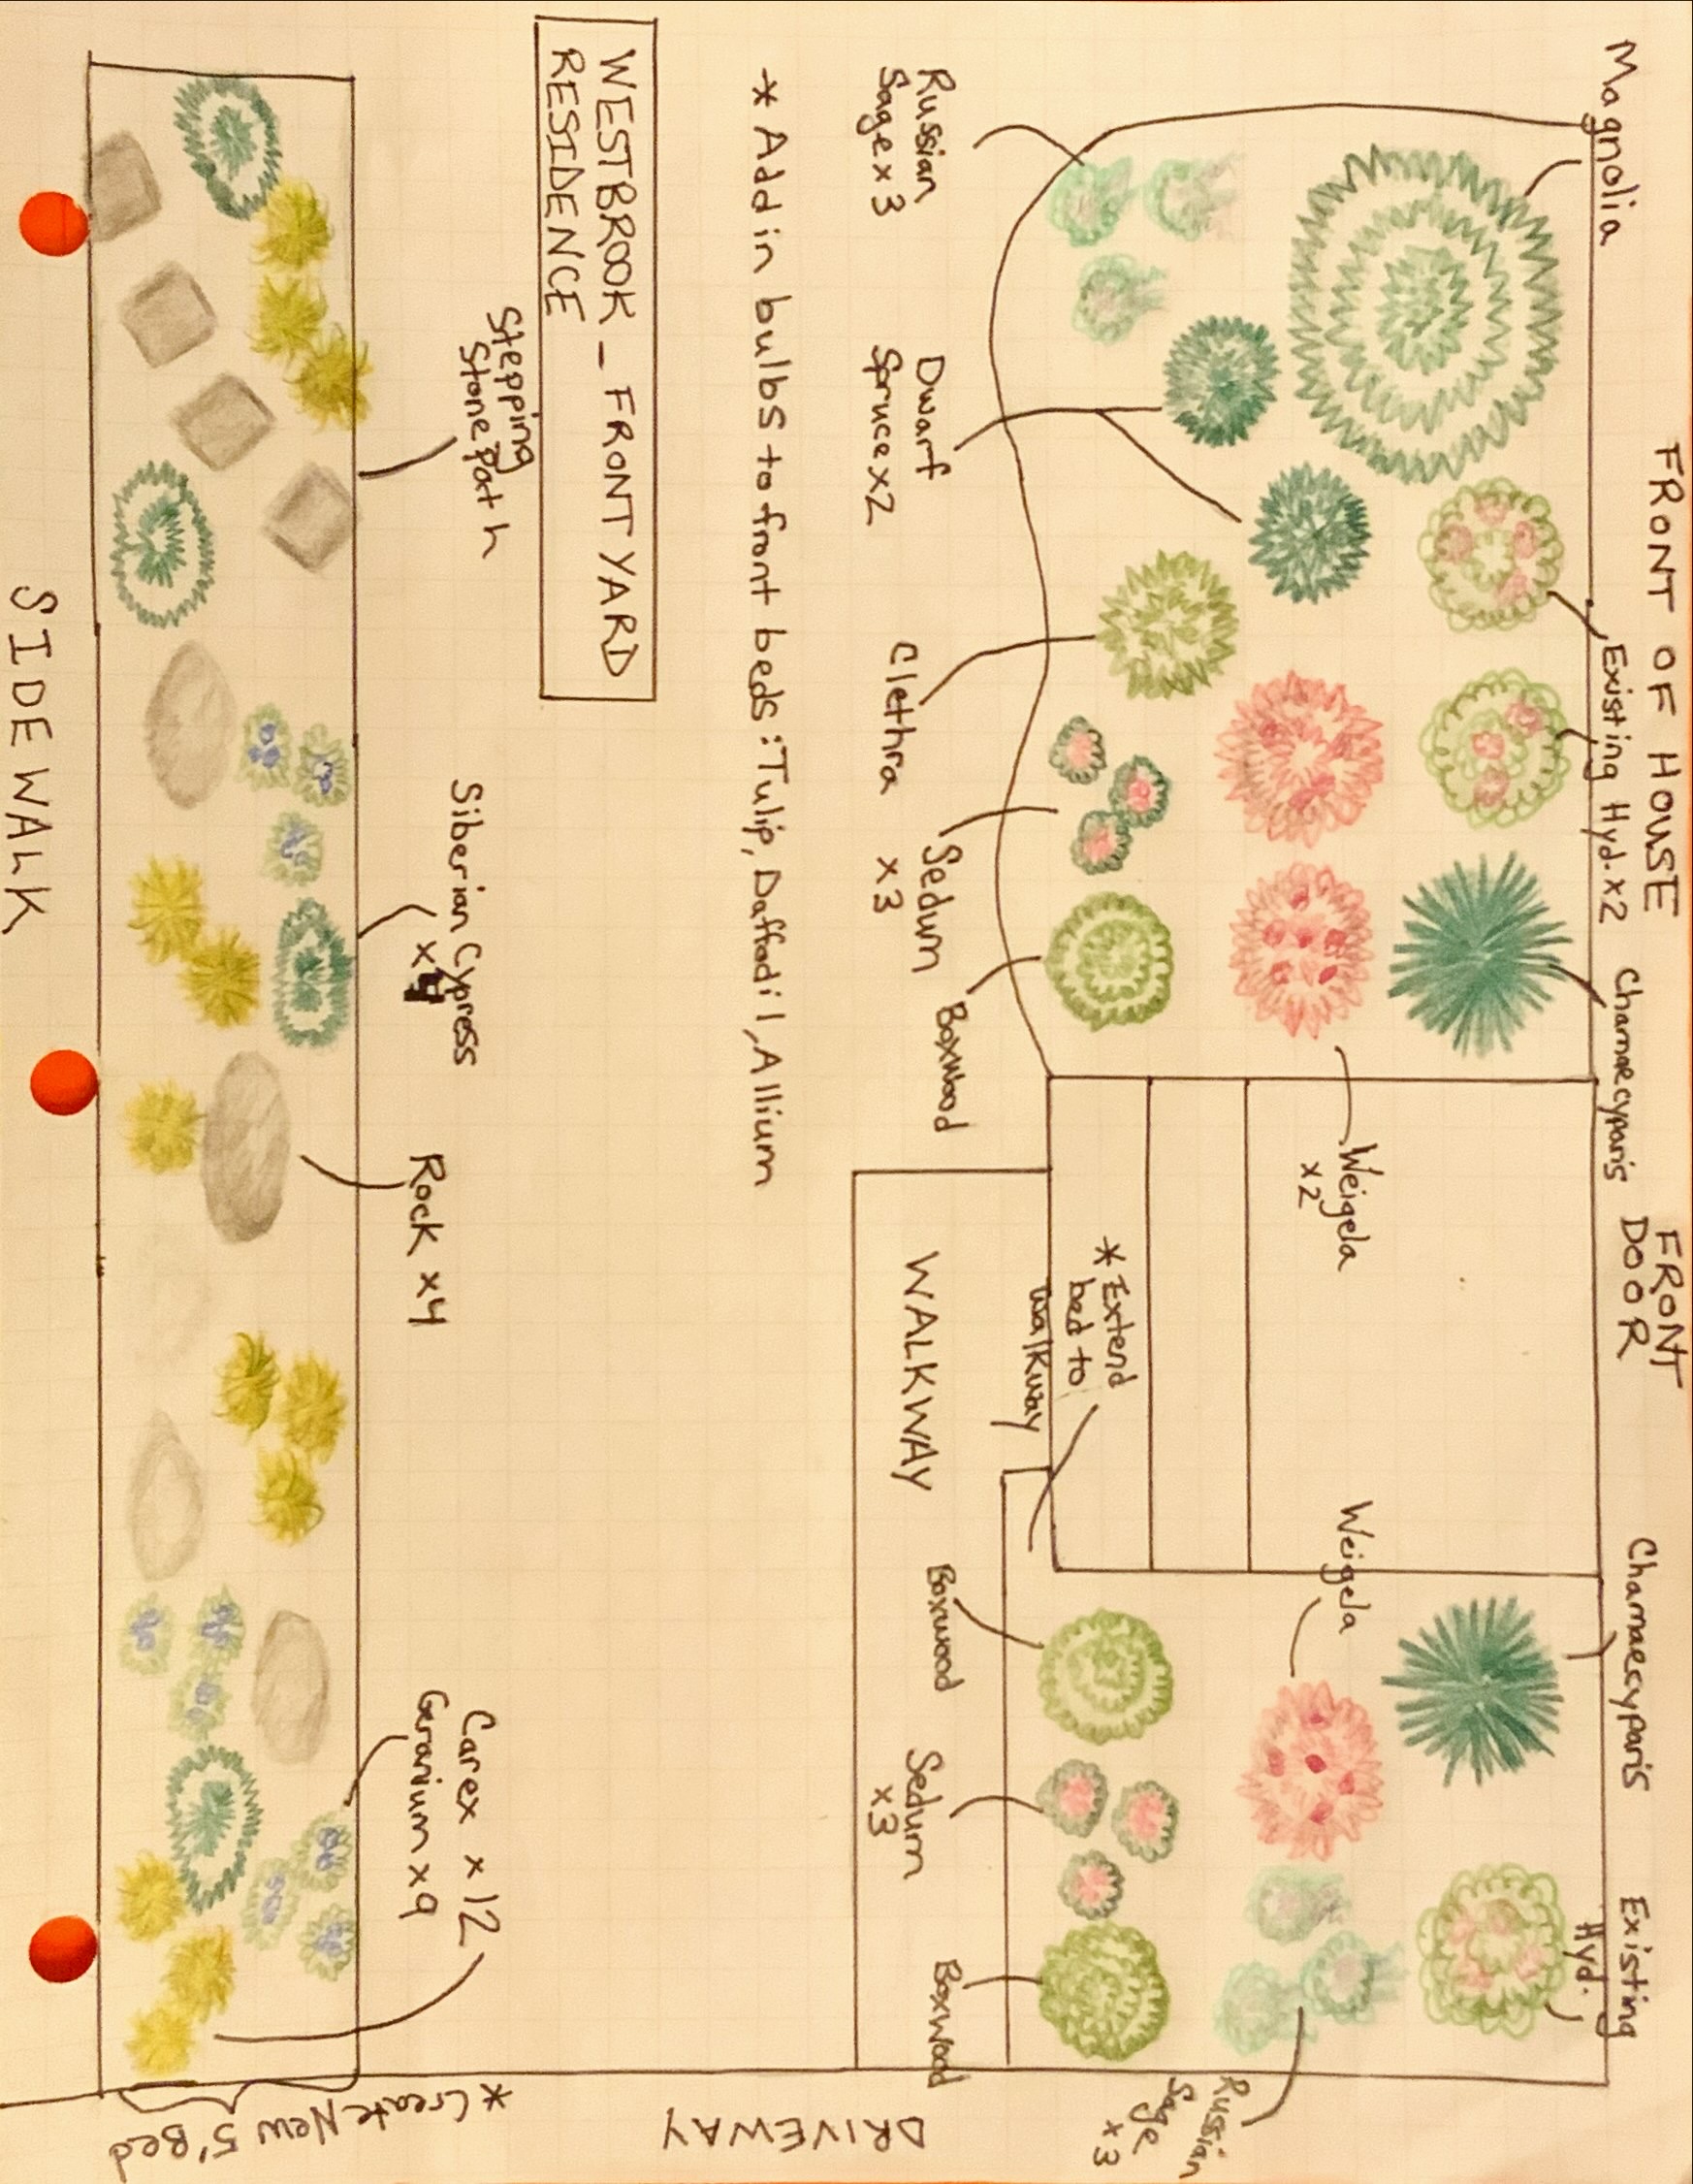 FRONT OF HOUSE
FRONT
DOOR
Magnolia
Existing Hyd. x2
Chamaecyparis
Chamaecyparis
Existing
Hyd.
Weigela
x2
Weigela
Russian
Sage
x3
* Extend
bed to
walkway
Russian
Sage x3
Dwarf
Spruce x2
Clethra
Sedum
x3
Boxwood
WALKWAY
Boxwood
Sedum
x3
Boxwood
DRIVEWAY
* Add in bulbs to front beds: Tulip, Daffodil, Allium
WESTBROOK - FRONT YARD
RESIDENCE
Stepping
Stone Path
Siberian Cypress
x4
Rock x4
Carex x12
Geranium x9
* Create New 5' Bed
SIDEWALK